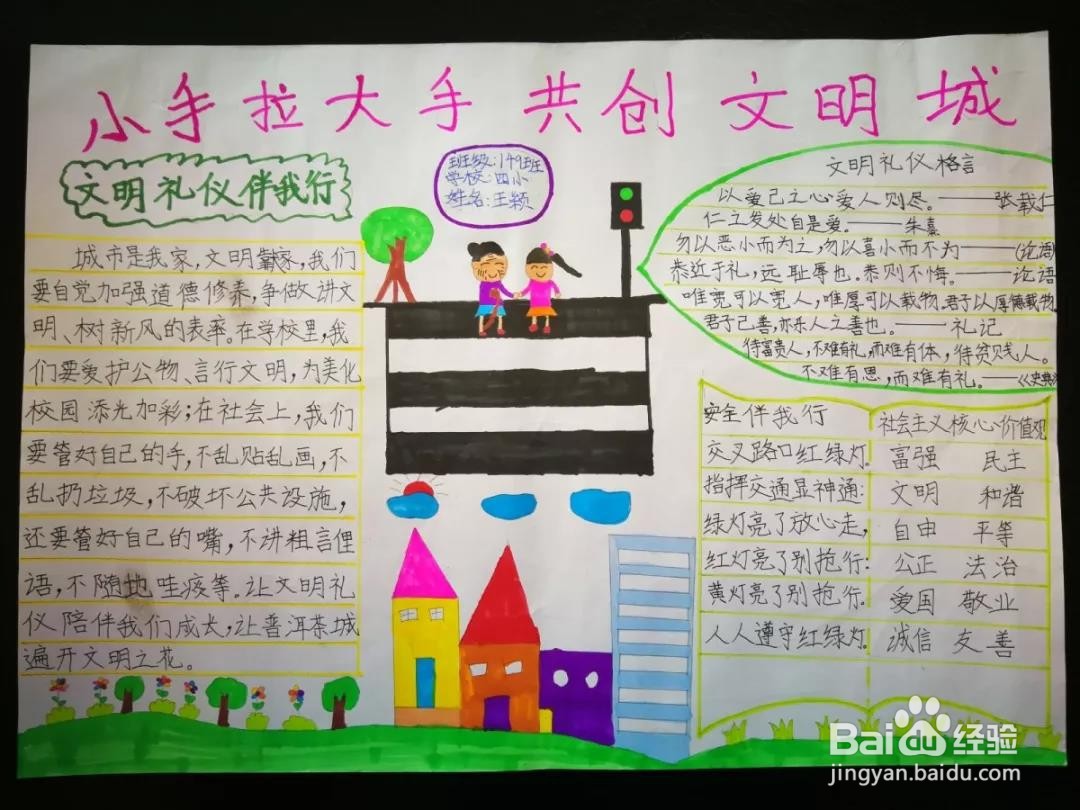 小手拉大手 共创文明城
文明礼仪伴我行
城市是我家，文明靠大家，我们
要自觉加强道德修养，争做讲文
明、树新风的表率。在学校里，我
们要爱护公物、言行文明，为美化
校园添光加彩；在社会上，我们
要管好自己的手，不乱贴乱画，不
乱扔垃圾，不破坏公共设施，
还要管好自己的嘴，不讲粗言俚
语，不随地吐痰等。让文明礼
仪陪伴我们成长，让普洱茶城
遍开文明之花。
班级：149班
学校：四小
姓名：王颖
文明礼仪格言
以爱己之心爱人则尽。——张载仁
仁之发处自是爱。——朱熹
勿以恶小而为之，勿以善小而不为——《论语》
恭近于礼，远耻辱也。恭则不悔。——论语
唯宽可以宽人，唯厚可以载物。君子以厚德载物
君子己善，亦乐人之善也。——礼记
待富贵人，不难有礼，而难有体，待贫贱人。
不难有恩，而难有礼。——《史典》
安全伴我行
交叉路口红绿灯.
指挥交通显神通：
绿灯亮了放心走，
红灯亮了别抢行：
黄灯亮了别抢行.
人人遵守红绿灯.
社会主义核心价值观
富强 民主
文明 和谐
自由 平等
公正 法治
爱国 敬业
诚信 友善
Baidu经验
jingyan.baidu.com